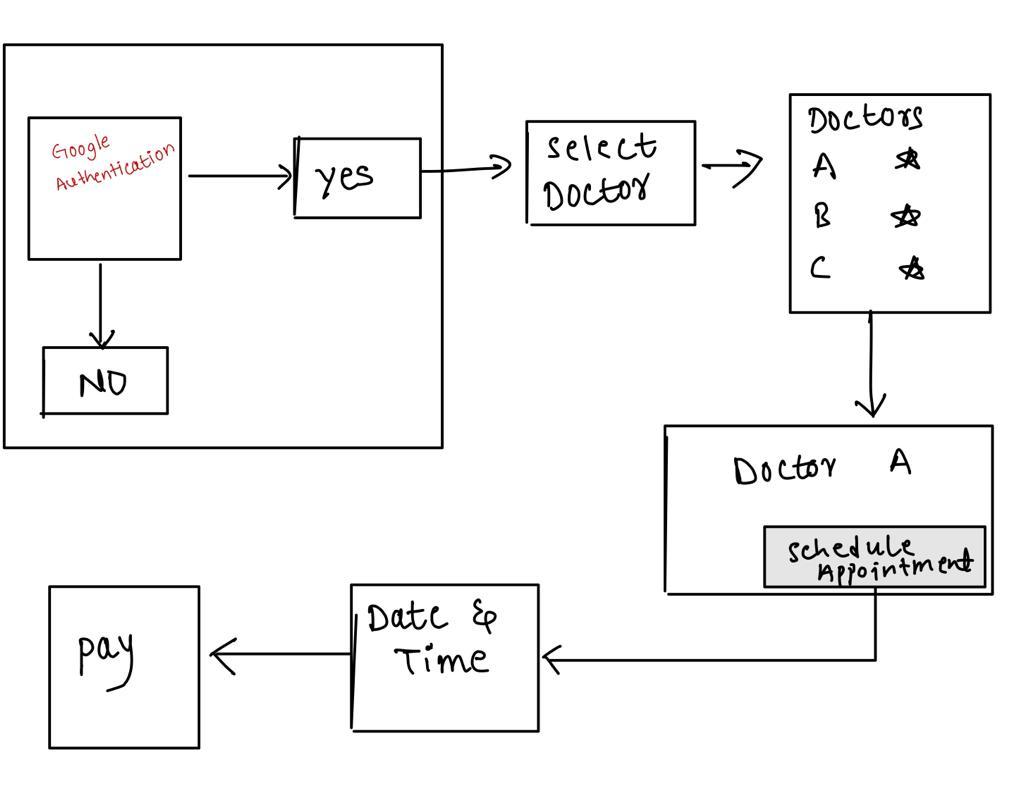 Google
Authentication
yes
NO
Select
Doctor
Doctors
A
B
C
Doctor A
Schedule
Appointment
Date &
Time
pay